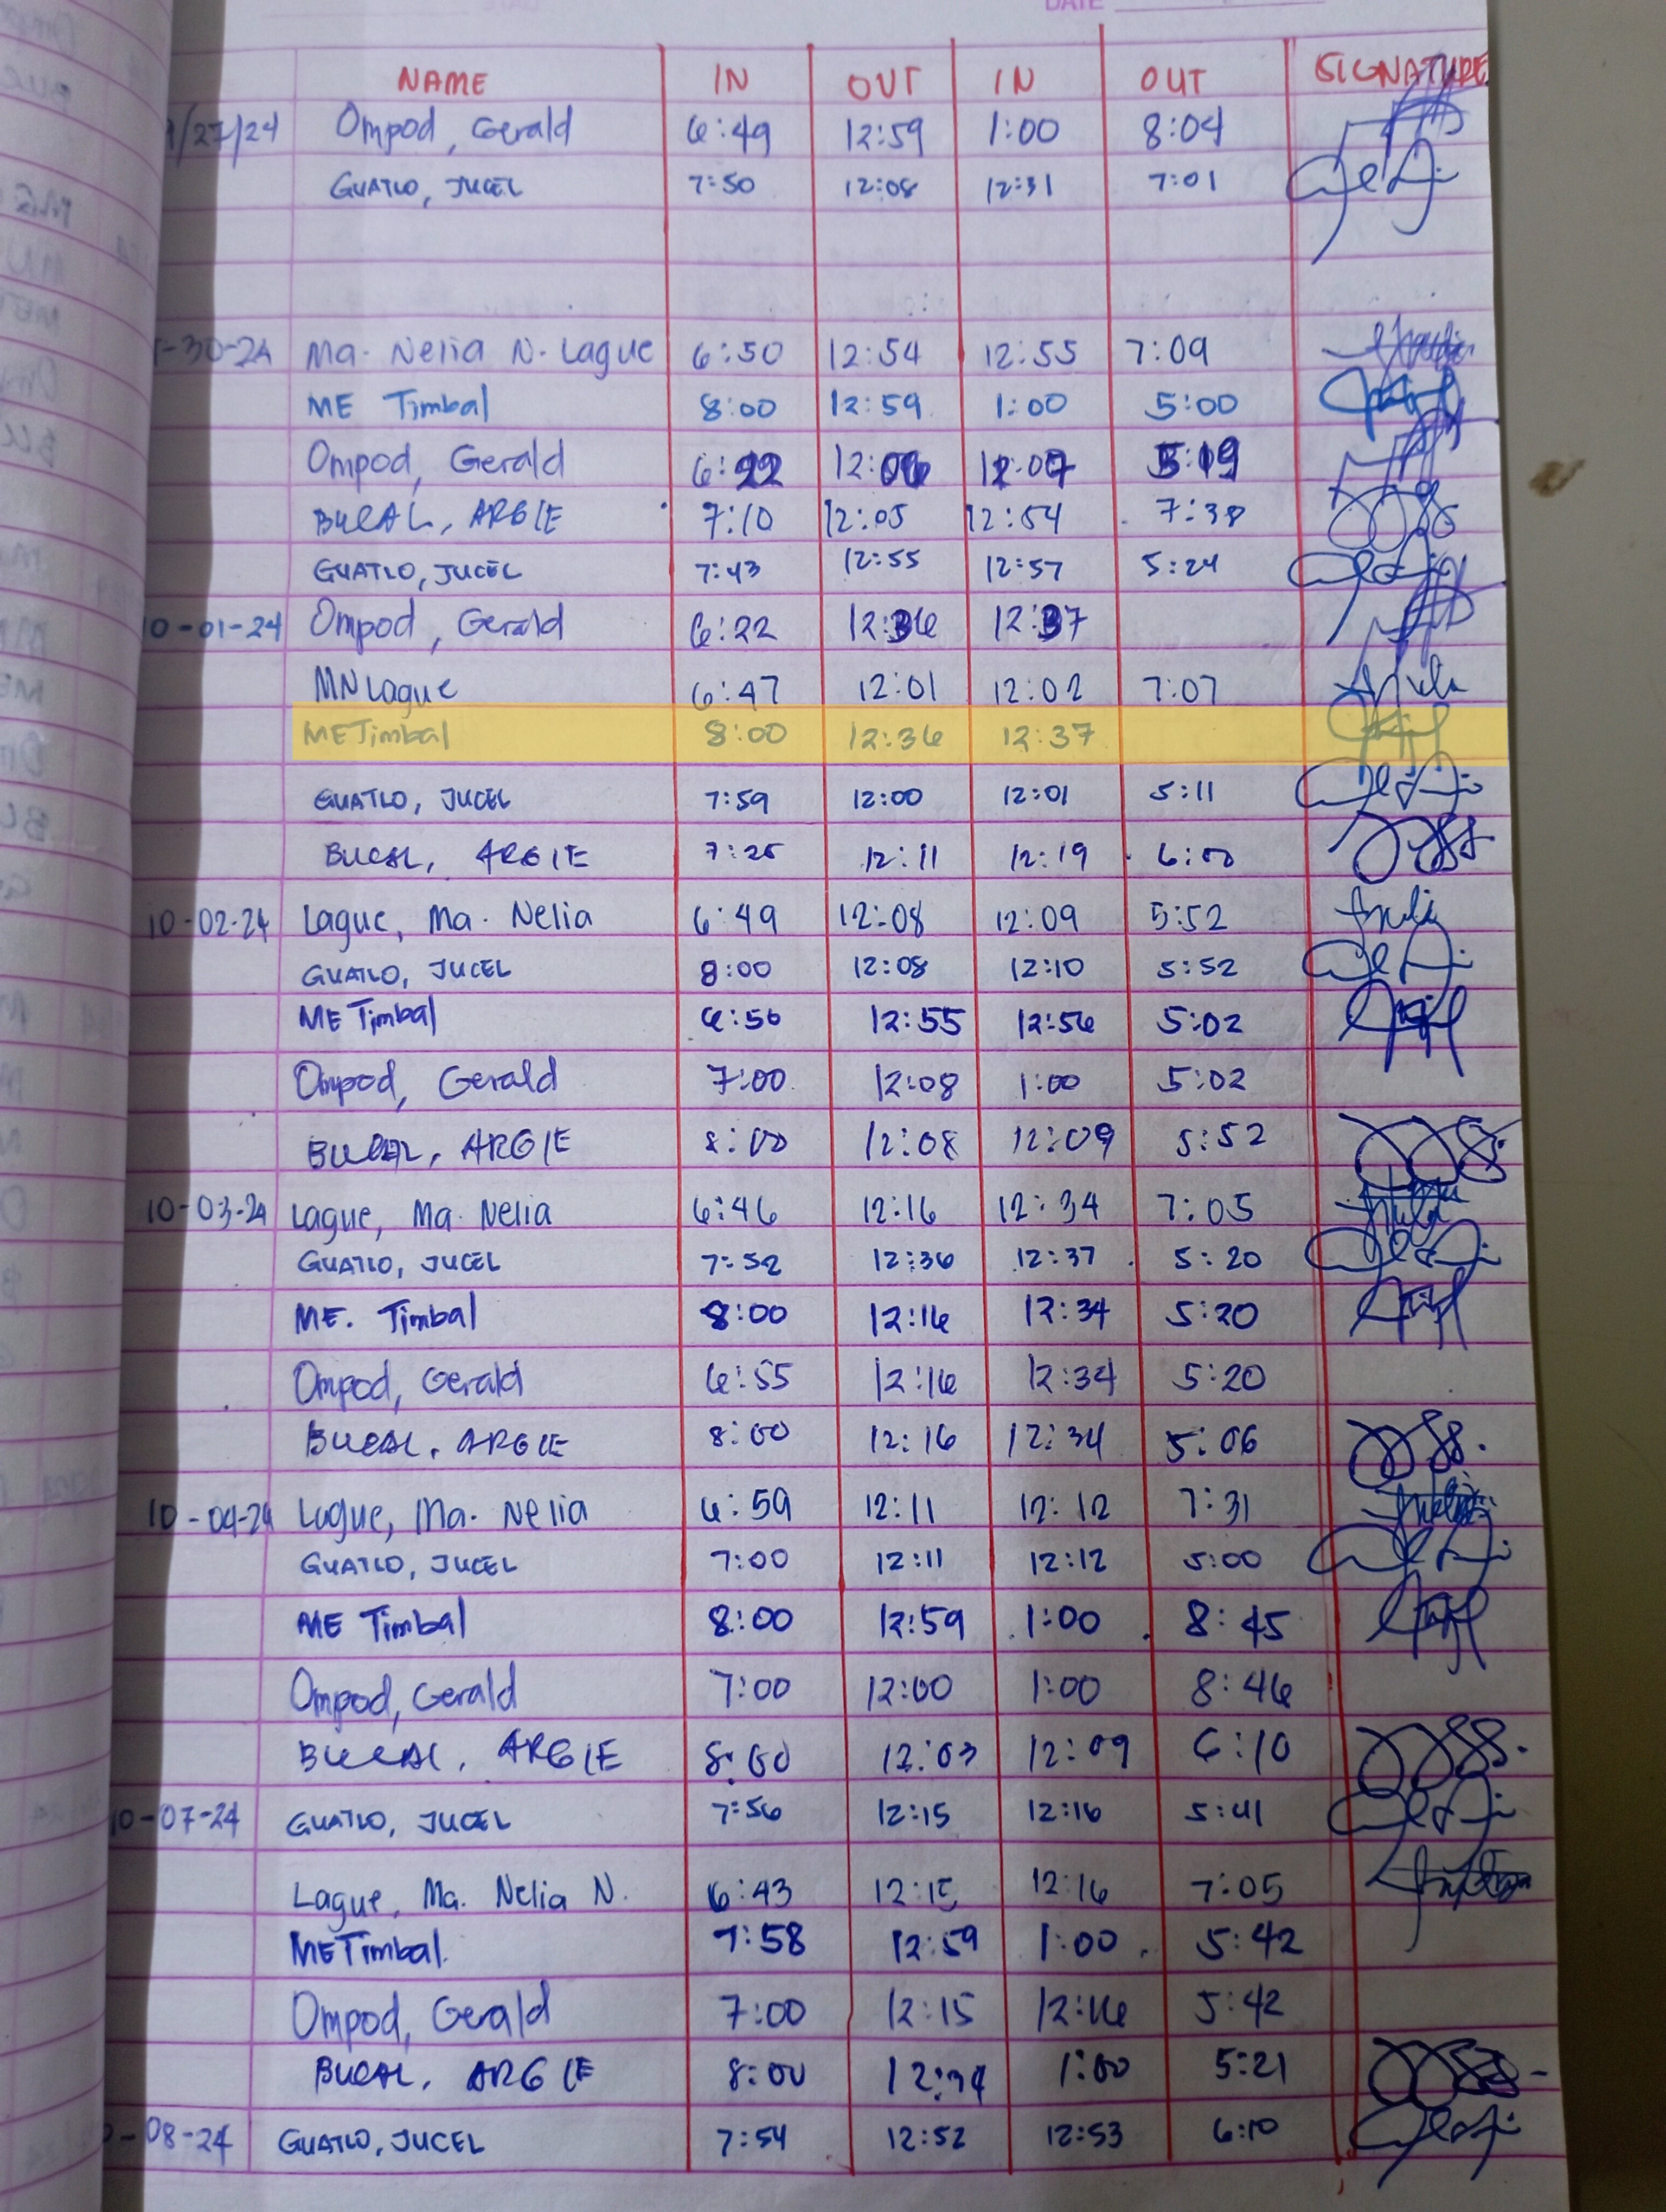 DATE
NAME IN OUT IN OUT SIGNATURE
9/27/24 Ompod, Gerald 6:49 12:59 1:00 8:04
GUATLO, JUCEL 7:50 12:08 12:31 7:01
-30-24 Ma. Nelia N. Lague 6:50 12:54 12:55 7:09
ME Timbal 8:00 12:59 1:00 5:00
Ompod, Gerald 6:22 12:06 12:07 5:19
BUCAL, ARGIE 7:10 12:05 12:54 7:38
GUATLO, JUCEL 7:43 12:55 12:57 5:24
10-01-24 Ompod, Gerald 6:22 12:36 12:37
MN Lague 6:47 12:01 12:02 7:07
ME Timbal 8:00 12:36 12:37
GUATLO, JUCEL 7:59 12:00 12:01 5:11
BUCAL, ARGIE 7:25 12:11 12:19 6:00
10-02-24 Lague, Ma. Nelia 6:49 12:08 12:09 5:52
GUATLO, JUCEL 8:00 12:08 12:10 5:52
ME Timbal 6:56 12:55 12:56 5:02
Ompod, Gerald 7:00 12:08 1:00 5:02
BUCAL, ARGIE 8:00 12:08 12:09 5:52
10-03-24 Lague, Ma. Nelia 6:46 12:16 12:34 7:05
GUATLO, JUCEL 7:52 12:36 12:37 5:20
ME. Timbal 8:00 12:16 12:34 5:20
Ompod, Gerald 6:55 12:16 12:34 5:20
BUCAL, ARGIE 8:00 12:16 12:34 5:06
10-04-24 Lague, Ma. Nelia 6:59 12:11 12:12 7:31
GUATLO, JUCEL 7:00 12:11 12:12 5:00
ME Timbal 8:00 12:59 1:00 8:45
Ompod, Gerald 7:00 12:00 1:00 8:46
BUCAL, ARGIE 8:00 12:03 12:09 6:10
10-07-24 GUATLO, JUCEL 7:56 12:15 12:16 5:41
Lague, Ma. Nelia N. 6:43 12:15 12:16 7:05
ME Timbal. 7:58 12:59 1:00 5:42
Ompod, Gerald 7:00 12:15 12:16 5:42
BUCAL, ARGIE 8:00 1:00 5:21
-08-24 GUATLO, JUCEL 7:54 12:52 12:53 6:10